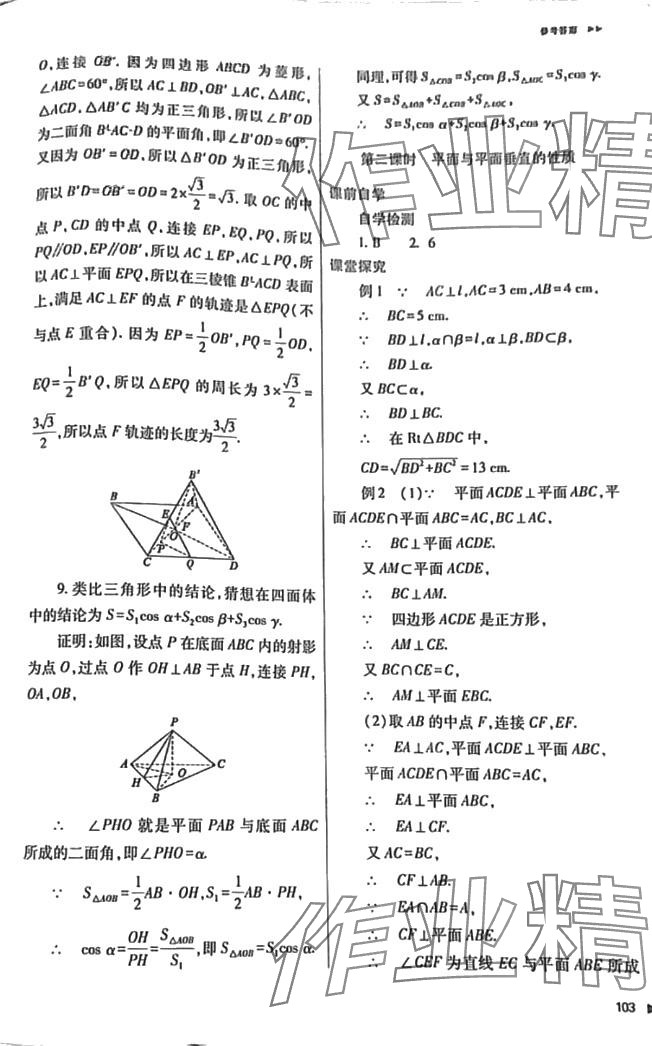 参考答案 ▶▶
O,连接 OB'. 因为四边形 ABCD 为菱形,
∠ABC=60°,所以 AC⊥BD,OB'⊥AC,△ABC,
△ACD,△AB'C 均为正三角形,所以∠B'OD
为二面角 B'-AC-D 的平面角,即∠B'OD=60°.
又因为 OB'=OD,所以△B'OD 为正三角形,
所以 B'D=OB'=OD=2×√3/2=√3. 取 OC 的中
点 P,CD 的中点 Q,连接 EP,EQ,PQ,所以
PQ∥OD,EP∥OB',所以 AC⊥EP,AC⊥PQ,所
以 AC⊥平面 EPQ,所以在三棱锥 B'-ACD 表面
上,满足 AC⊥EF 的点 F 的轨迹是△EPQ(不
与点 E 重合). 因为 EP=1/2OB',PQ=1/2OD,
EQ=1/2B'Q,所以△EPQ 的周长为 3×√3/2=
3√3/2,所以点 F 轨迹的长度为3√3/2.
B'
B
A
E
F
O
P
C
Q
D
9. 类比三角形中的结论,猜想在四面体
中的结论为 S=S₁cos α+S₂cos β+S₃cos γ.
证明:如图,设点 P 在底面 ABC 内的射影
为点 O,过点 O 作 OH⊥AB 于点 H,连接 PH,
OA,OB,
P
A
O
C
H
B
∴ ∠PHO 就是平面 PAB 与底面 ABC
所成的二面角,即∠PHO=α.
∵ S△AOB=1/2AB·OH,S₁=1/2AB·PH,
∴ cos α=OH/PH=S△AOB/S₁,即 S△AOB=S₁cos α.
同理,可得 S△COB=S₂cos β,S△AOC=S₃cos γ.
又 S=S△AOB+S△COB+S△AOC,
∴ S=S₁cos α+S₂cos β+S₃cos γ.
第二课时 平面与平面垂直的性质
课前自学
自学检测
1. B 2. 6
课堂探究
例1 ∵ AC⊥l,AC=3 cm,AB=4 cm,
∴ BC=5 cm.
∵ BD⊥l,α∩β=l,α⊥β,BD⊂β,
∴ BD⊥α.
又 BC⊂α,
∴ BD⊥BC.
∴ 在 Rt△BDC 中,
CD=√(BD²+BC²)=13 cm.
例2 (1)∵ 平面 ACDE⊥平面 ABC,平
面 ACDE∩平面 ABC=AC,BC⊥AC,
∴ BC⊥平面 ACDE.
又 AM⊂平面 ACDE,
∴ BC⊥AM.
∵ 四边形 ACDE 是正方形,
∴ AM⊥CE.
又 BC∩CE=C,
∴ AM⊥平面 EBC.
(2)取 AB 的中点 F,连接 CF,EF.
∵ EA⊥AC,平面 ACDE⊥平面 ABC,
平面 ACDE∩平面 ABC=AC,
∴ EA⊥平面 ABC,
∴ EA⊥CF.
又 AC=BC,
∴ CF⊥AB.
∵ EA∩AB=A,
∴ CF⊥平面 ABE.
∴ ∠CEF 为直线 EC 与平面 ABE 所成
103 ▶
作业精
作业精